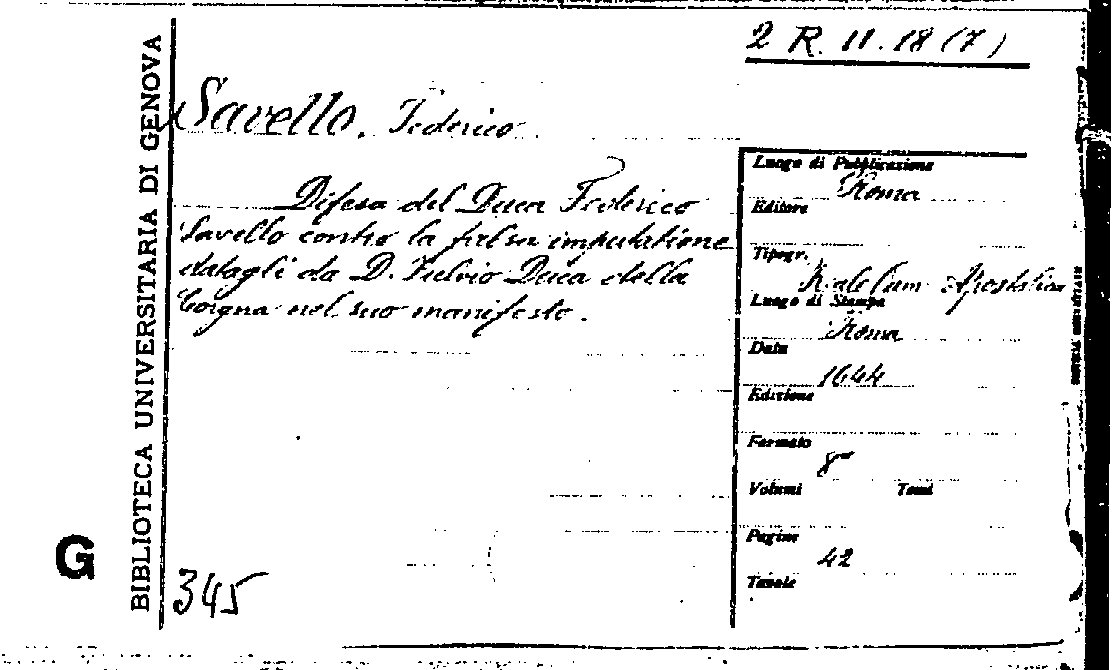 2 R. 11.18 (7)
BIBLIOTECA UNIVERSITARIA DI GENOVA
Savello, Federico
Difesa del Duca Federico
Savello contro la falsa imputatione
datagli da D. Fulvio Duca della
Corgna nel suo manifesto.
Luogo di Pubblicazione
Roma
Editore
Tipogr.
Apostolica
Luogo di Stampa
Roma
Data
1644
Edizione
Formato
8°
Volumi Tomi
Pagine
42
Tavole
G
345